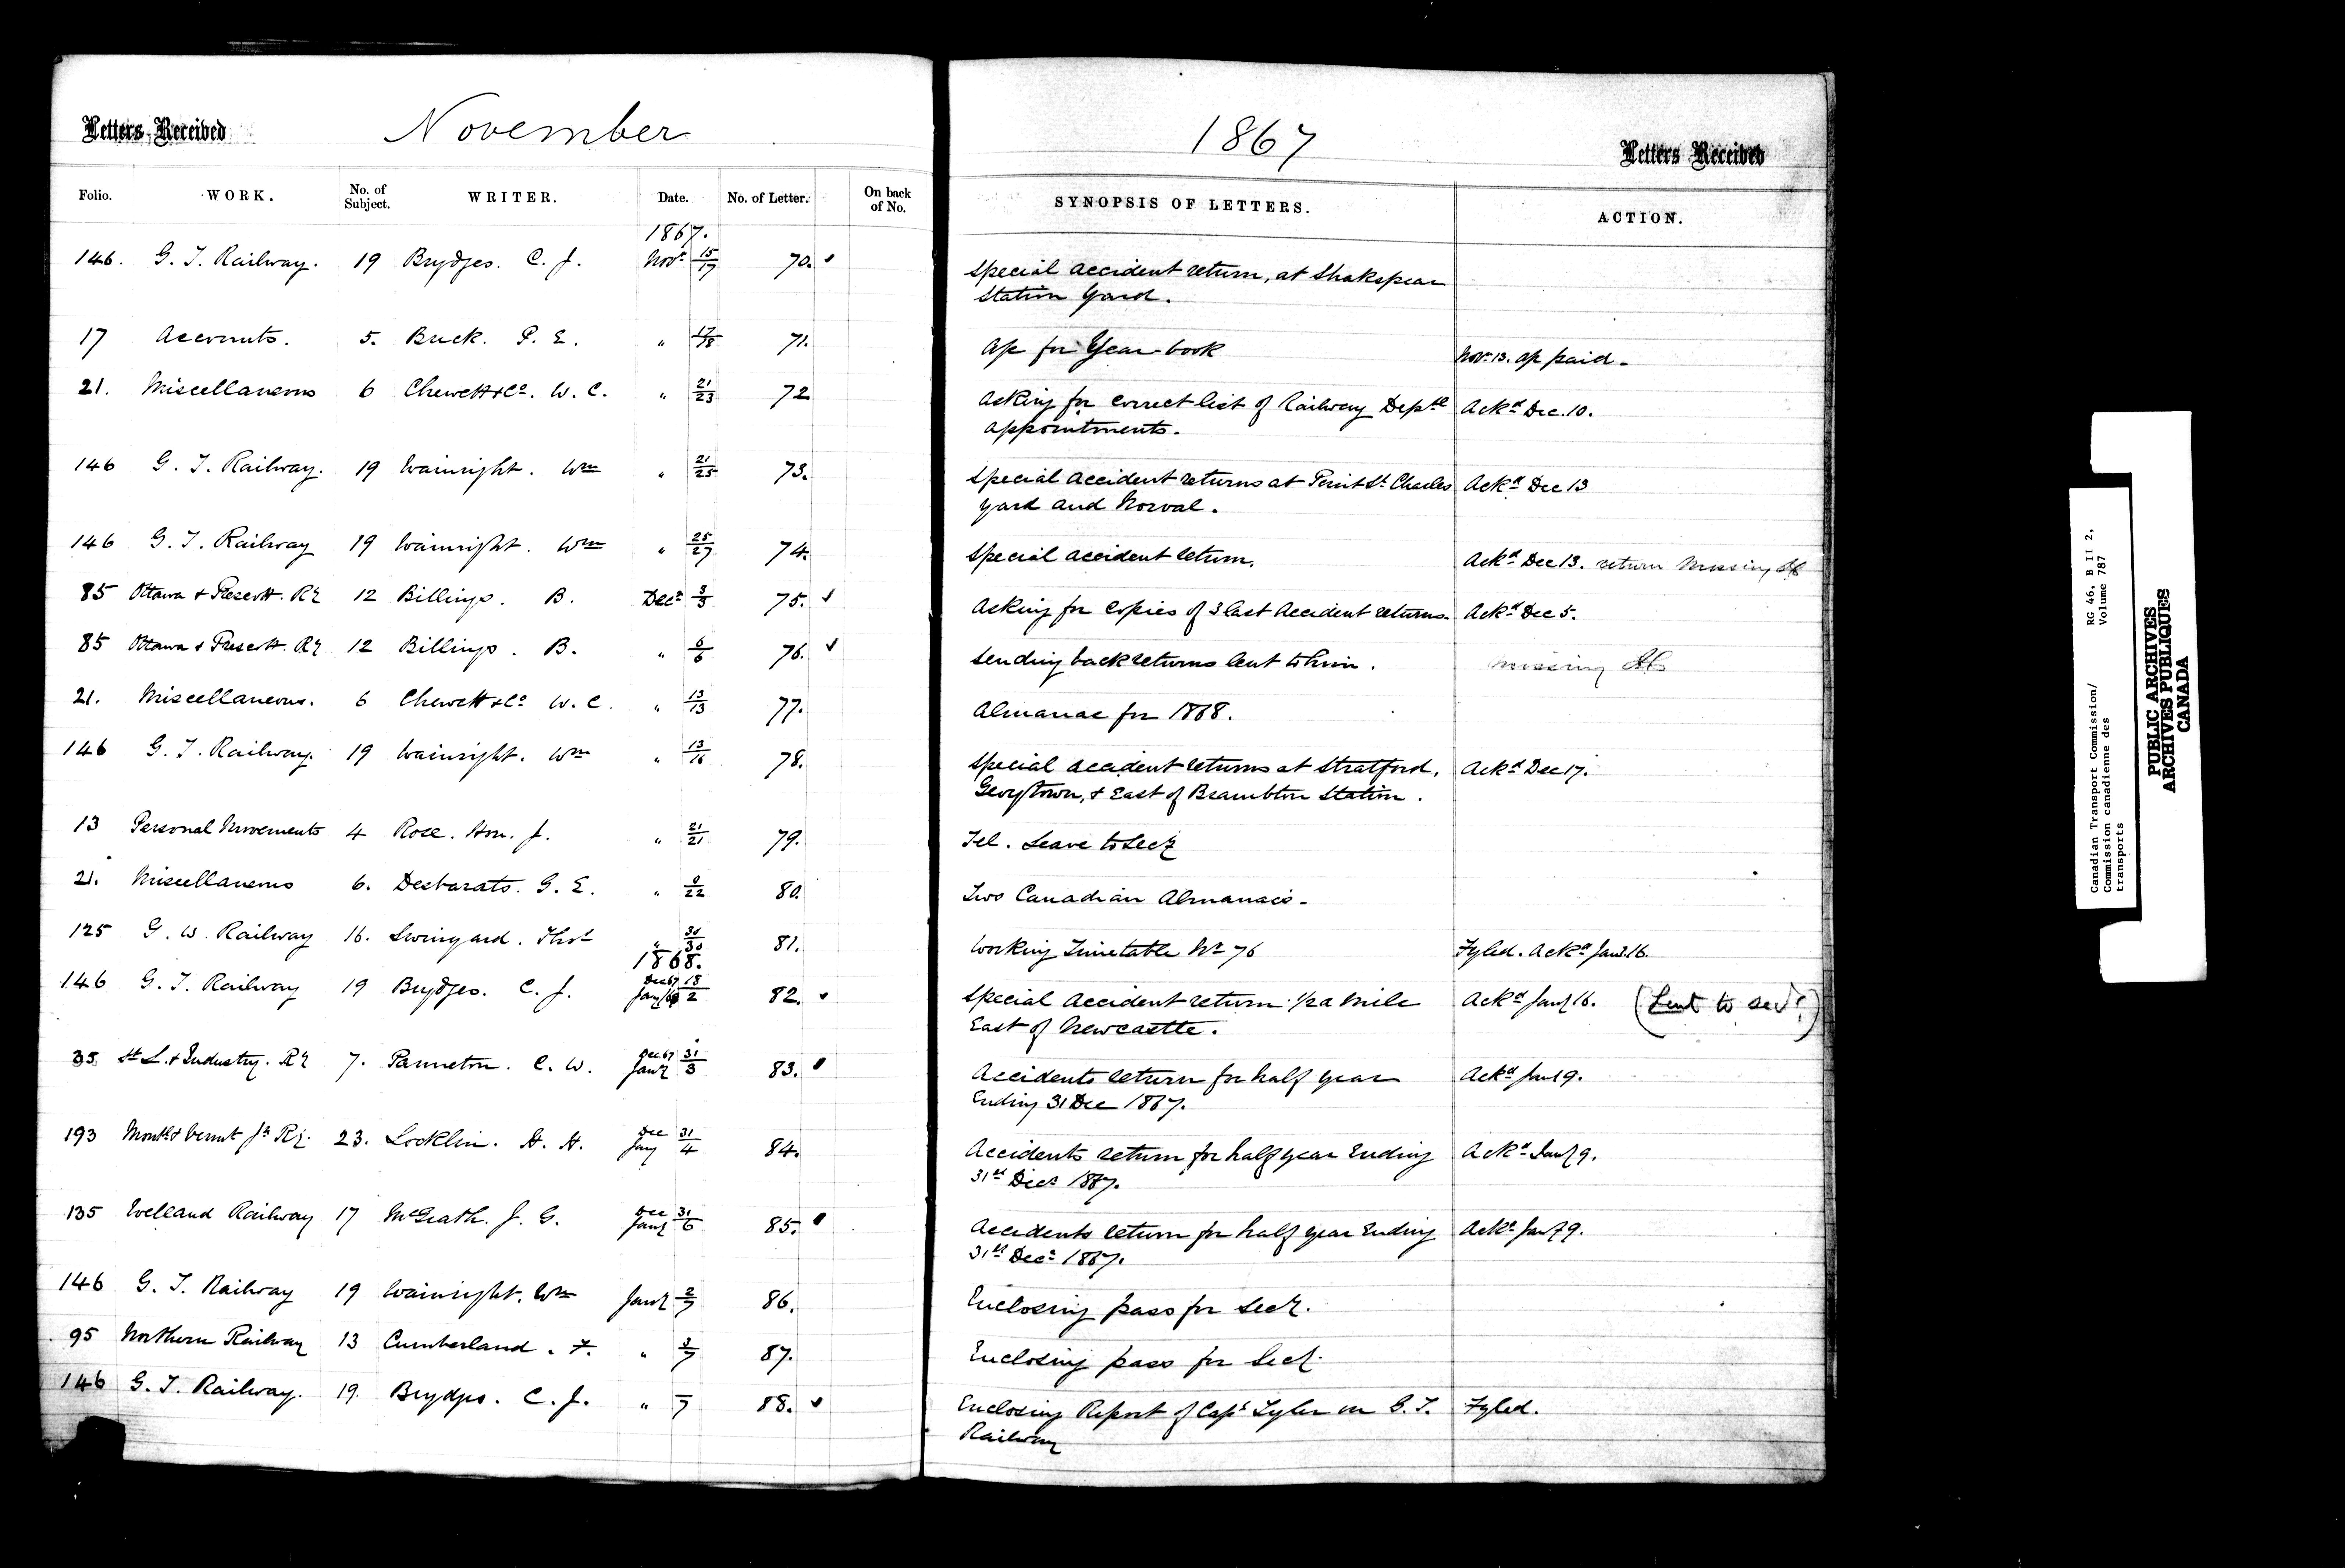 Letters Received
November
1867
Letters Received
Folio. WORK. No. of Subject. WRITER. Date. No. of Letter. On back of No. SYNOPSIS OF LETTERS. ACTION.
1867.
146. G. T. Railway. 19 Brydges. C. J. Novr 15/17 70. ✓ Special accident return, at Shakspear
Station Yard.
17 Accounts. 5. Buck. P. E. " 17/18 71. a/c for Year-book Nov. 13. a/c paid.
21. Miscellaneous 6 Chewett & Co. W. C. " 21/23 72 Asking for correct list of Railway Deptl Ackd Dec. 10.
appointments.
146 G. T. Railway. 19 Wainright. Wm " 21/25 73. Special accident returns at Point St. Charles Ackd Dec 13
yard and Norval.
146 G. T. Railway 19 Wainright. Wm " 25/27 74. Special accident return. Ackd Dec 13. return Missing
85 Ottawa & Prescott. Ry 12 Billings. B. Decr 3/3 75. ✓ Asking for copies of 3 last accident returns. Ackd Dec 5.
85 Ottawa & Prescott. Ry 12 Billings. B. " 6/6 76. ✓ Sending back returns lent to him. missing
21. Miscellaneous. 6 Chewett & Co W. C. " 13/13 77. Almanac for 1868.
146 G. T. Railway. 19 Wainright. Wm " 13/16 78. Special accident returns at Stratford, Ackd Dec 17.
Georgetown, & East of Brambton Station.
13 Personal Movements 4 Rose. Hon. J. " 21/21 79. Tel. Leave to Secy
21. Miscellaneous 6. Desbarats. G. E. " 0/22 80. Two Canadian Almanacs.
125 G. W. Railway 16. Swinyard. Thos " 30/30 81. Working Timetable No 76 Fyled. Ackd Jan. 16.
1868.
146 G. T. Railway 19 Brydges. C. J. Dec 67 18 / Jany 68 2 82. ✓ Special accident return 1/2 a mile Ackd Jany 16. (Sent to
East of Newcastle.
35 St. L. & Industry. Ry 7. Panneton. C. W. Dec. 67 31 / Jany 3 83. Accidents return for half year Ackd Jan 9.
Ending 31 Dec 1867.
193 Montl & Vermt Jn Ry. 23. Locklin. H. H. Dec 31 / Jany 4 84. Accidents return for half year Ending Ackd Jany 9.
31st Decr 1867.
135 Welland Railway 17 McGrath. J. G. Dec 31 / Jany 6 85. Accidents return for half year Ending Ackd Jany 9.
31st Decr 1867.
146 G. T. Railway 19 Wainright. Wm Jany 2/7 86. Enclosing pass for Secy.
95 Northern Railway 13 Cumberland. F. " 3/7 87. Enclosing pass for Secy.
146 G. T. Railway. 19. Brydges. C. J. " –/7 88. ✓ Enclosing Report of Capt Tyler on G. T. Fyled.
Railway
Canadian Transport Commission/
Commission canadienne des
transports
RG 46, B II 2,
Volume 787
PUBLIC ARCHIVES
ARCHIVES PUBLIQUES
CANADA